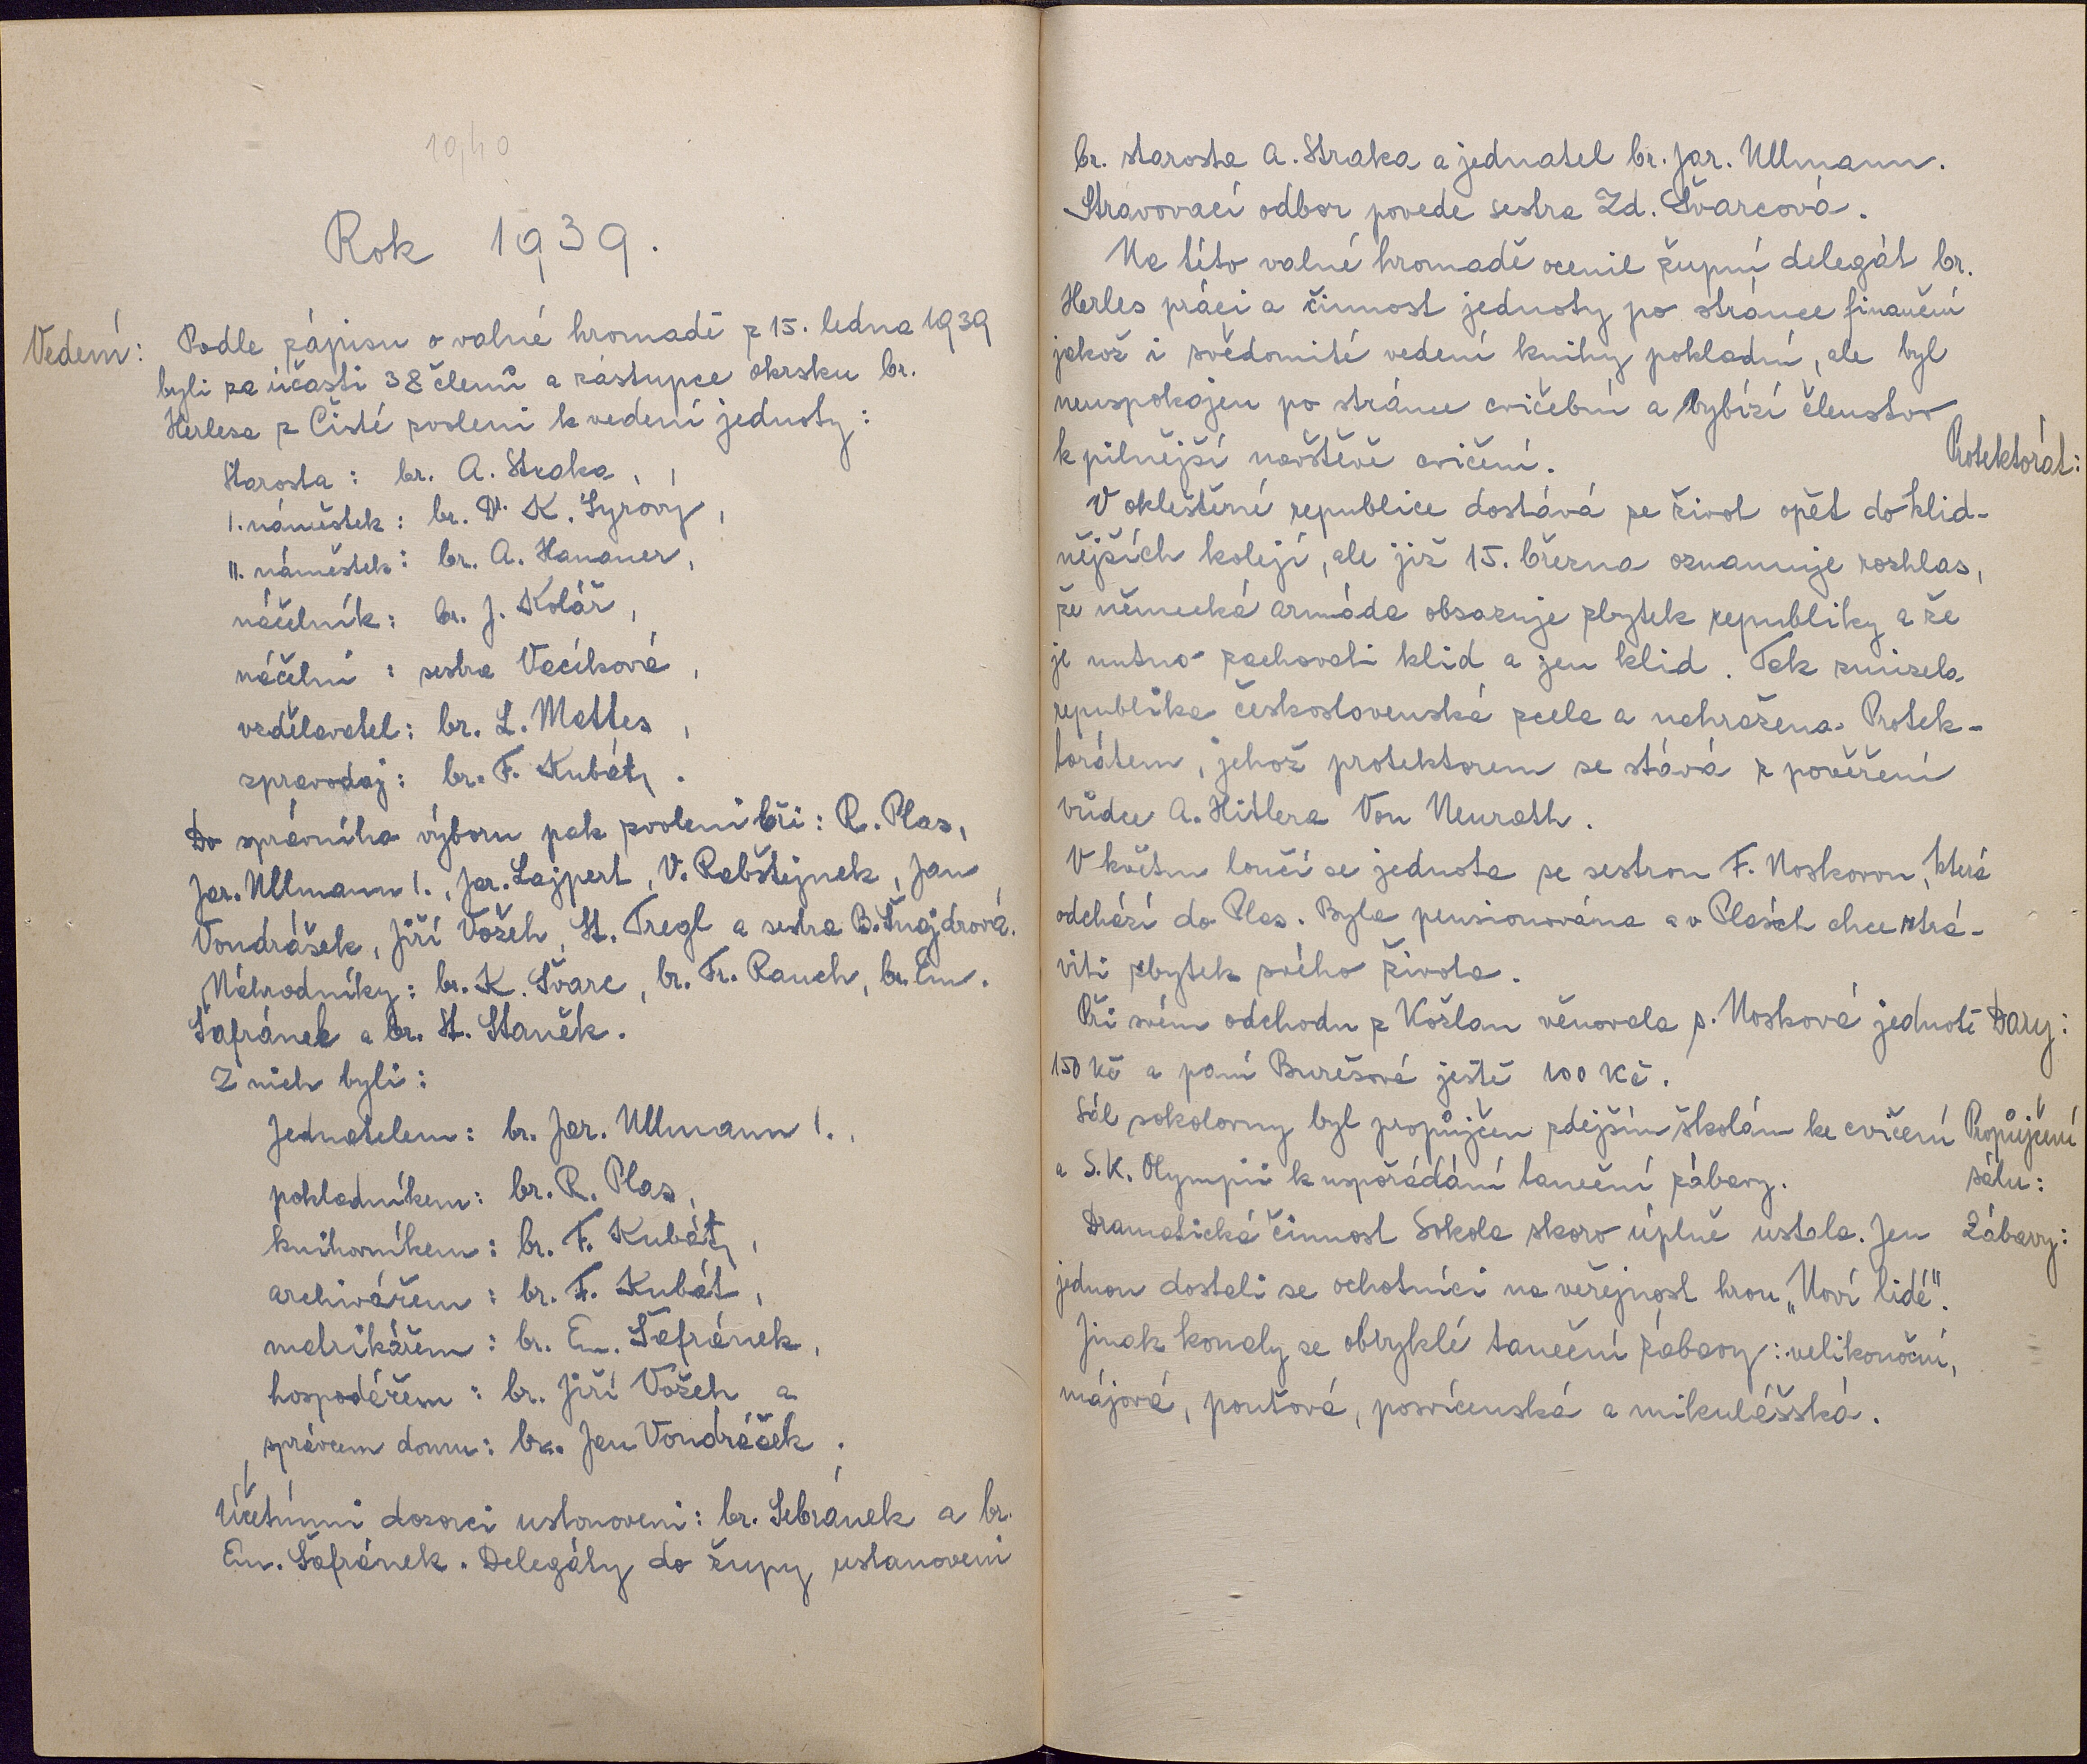 1940
Rok 1939.
Vedení:
Podle zápisu o valné hromadě z 15. ledna 1939
byli za účasti 38 členů a zástupce okrsku br.
Herlesa z Čisté zvoleni k vedení jednoty:
Starosta: br. A. Straka,
I. náměstek: br. Dr. K. Syrový,
II. náměstek: br. A. Hanauer,
náčelník: br. J. Kolář,
náčelní: sestra Vacíková,
vzdělavatel: br. L. Mattes,
zpravodaj: br. F. Kubát.
Do správního výboru pak zvoleni bři: R. Plas,
Jar. Ullmann I., Jar. Lajpert, V. Rabštejnek, Jan
Vondrášek, Jiří Vožeh, St. Tregl a sestra B. Šnajdrová.
Náhrodníky: br. K. Švarc, br. Fr. Rauch, br. Em.
Šafránek a br. St. Staněk.
Z nich byli:
Jednatelem: br. Jar. Ullmann I.,
pokladníkem: br. R. Plas,
knihovníkem: br. F. Kubát,
archivářem: br. F. Kubát,
matrikářem: br. Em. Šafránek,
hospodářem: br. Jiří Vožeh a
správcem domu: br. Jan Vondráček.
Účetními dozorci ustanoveni: br. Sebránek a br.
Em. Šafránek. Delegáty do župy ustanoveni
br. starosta A. Straka a jednatel br. Jar. Ullmann.
Stravovací odbor povede sestra Zd. Švarcová.
Na této valné hromadě ocenil župní delegát br.
Herles práci a činnost jednoty po stránce finanční
jakož i svědomité vedení knihy pokladní, ale byl
neuspokojen po stránce cvičební a vybízí členstvo
k pilnější návštěvě cvičení.
Protektorát:
V okleštěné republice dostává se život opět do klid-
nějších kolejí, ale již 15. března oznamuje rozhlas,
že německá armáda obsazuje zbytek republiky a že
je nutno zachovati klid a jen klid. Tak zmizela
republika československá zcela a nahražena Protek-
torátem, jehož protektorem se stává z pověření
vůdce A. Hitlera Von Neurath.
V květnu loučí se jednota se sestrou F. Noskovou, která
odchází do Plas. Byla pensionována a v Plasích chce strá-
viti zbytek svého života.
Při svém odchodu z Kožlan věnovala s. Nosková jednotě
Dary:
150 Kč a paní Burešová ještě 100 Kč.
Sál sokolovny byl propůjčen zdejším školám ke cvičení
Propůjčení
a S.K. Olympii k uspořádání taneční zábavy.
sálu:
Dramatická činnost Sokola skoro úplně ustala. Jen
Zábavy:
jednou dostali se ochotníci na veřejnost hrou „Noví lidé".
Jinak konaly se obvyklé taneční zábavy: velikonoční,
májová, pouťová, posvícenská a mikulášská.